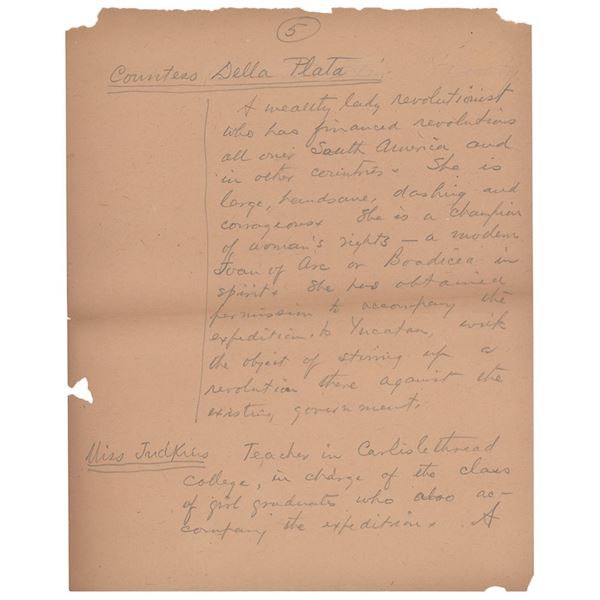 5
Countess Della Plata
A wealthy lady revolutionist
who has financed revolutions
all over South America and
in other countries. She is
large, handsome, dashing and
corrageous. She is a champion
of woman's rights — a modern
Joan of Arc or Boadicea in
spirit. She has obtained
permission to accompany the
expedition, to Yucatan, with
the object of stirring up a
revolution there against the
existing government.
Miss Judkins Teacher in Carlislethread
College, in charge of the class
of girl graduates who also ac-
company the expedition. A